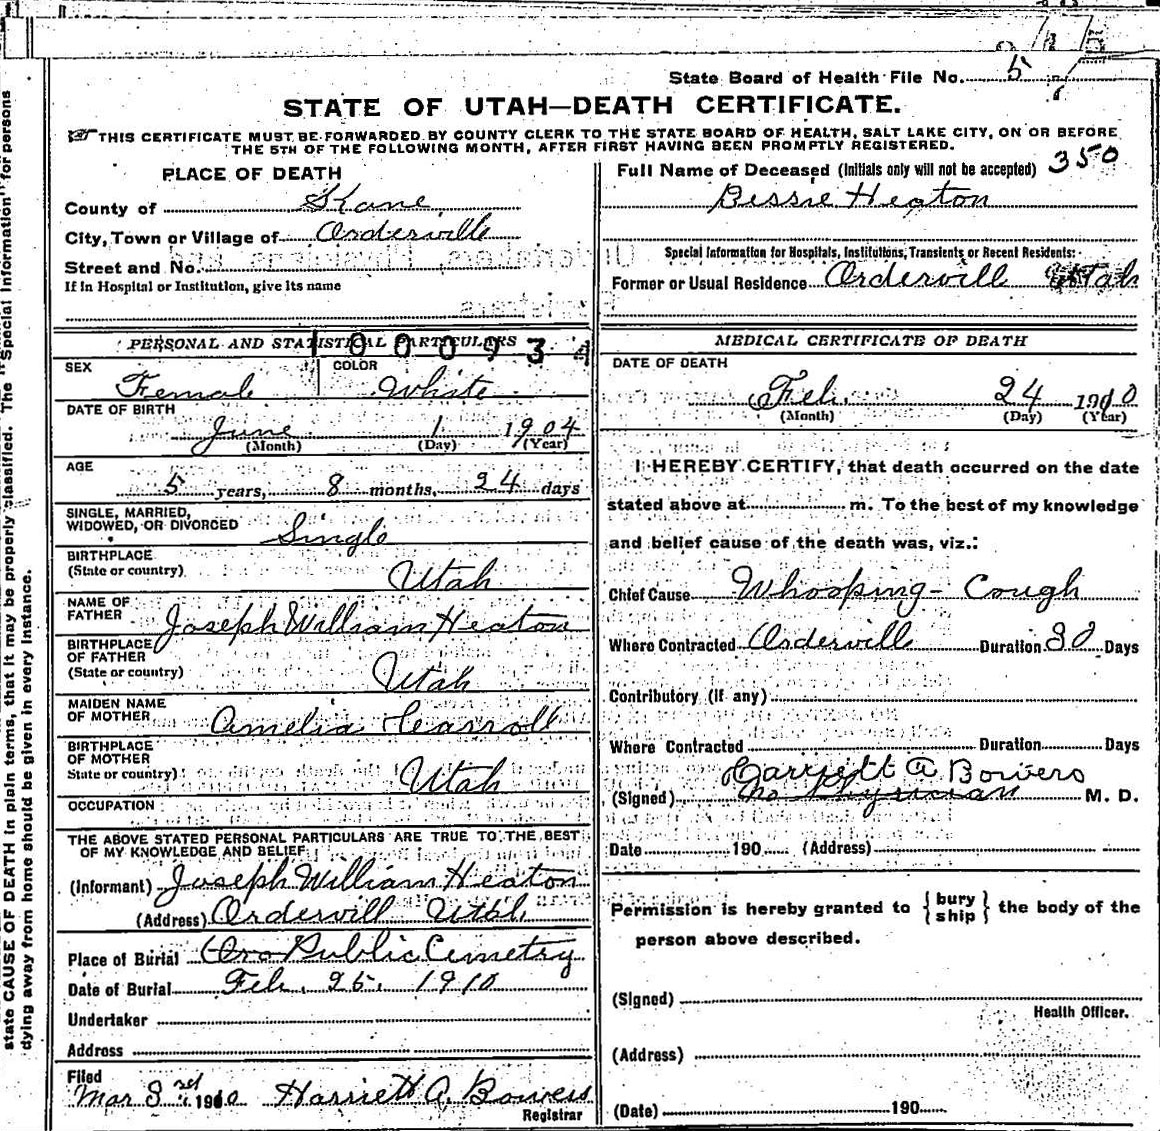 State Board of Health File No. 5
STATE OF UTAH—DEATH CERTIFICATE.
THIS CERTIFICATE MUST BE FORWARDED BY COUNTY CLERK TO THE STATE BOARD OF HEALTH, SALT LAKE CITY, ON OR BEFORE
THE 5TH OF THE FOLLOWING MONTH, AFTER FIRST HAVING BEEN PROMPTLY REGISTERED.
350
PLACE OF DEATH
County of Kane
City, Town or Village of Orderville
Street and No.
If in Hospital or Institution, give its name
Full Name of Deceased (Initials only will not be accepted)
Bessie Heaton
Special Information for Hospitals, Institutions, Transients or Recent Residents:
Former or Usual Residence Ordervill Utah
PERSONAL AND STATISTICAL PARTICULARS
1000934
SEX Female COLOR White
DATE OF BIRTH
June 1 1904
(Month) (Day) (Year)
AGE
5 years, 8 months, 24 days
SINGLE, MARRIED,
WIDOWED, OR DIVORCED Single
BIRTHPLACE
(State or country) Utah
NAME OF
FATHER Joseph William Heaton
BIRTHPLACE
OF FATHER
(State or country) Utah
MAIDEN NAME
OF MOTHER Amelia Carroll
BIRTHPLACE
OF MOTHER
State or country) Utah
OCCUPATION
THE ABOVE STATED PERSONAL PARTICULARS ARE TRUE TO THE BEST
OF MY KNOWLEDGE AND BELIEF
(Informant) Joseph William Heaton
(Address) Ordervill Utah
Place of Burial Public Cemetry
Date of Burial Feb. 25. 1910
Undertaker
Address
Filed
Mar 3rd 1910 Harriett A. Bowers
Registrar
MEDICAL CERTIFICATE OF DEATH
DATE OF DEATH
Feb. 24 1910
(Month) (Day) (Year)
I HEREBY CERTIFY, that death occurred on the date
stated above at m. To the best of my knowledge
and belief cause of the death was, viz.:
Chief Cause Whooping-Cough
Where Contracted Ordervill Duration 30 Days
Contributory (if any)
Where Contracted Duration Days
Harriett A Bowers
(Signed) No Physician M. D.
Date 190 (Address)
Permission is hereby granted to {bury
ship} the body of the
person above described.
(Signed)
Health Officer.
(Address)
(Date) 190
state CAUSE OF DEATH in plain terms, that it may be properly classified. The "Special Information" for persons
dying away from home should be given in every instance.